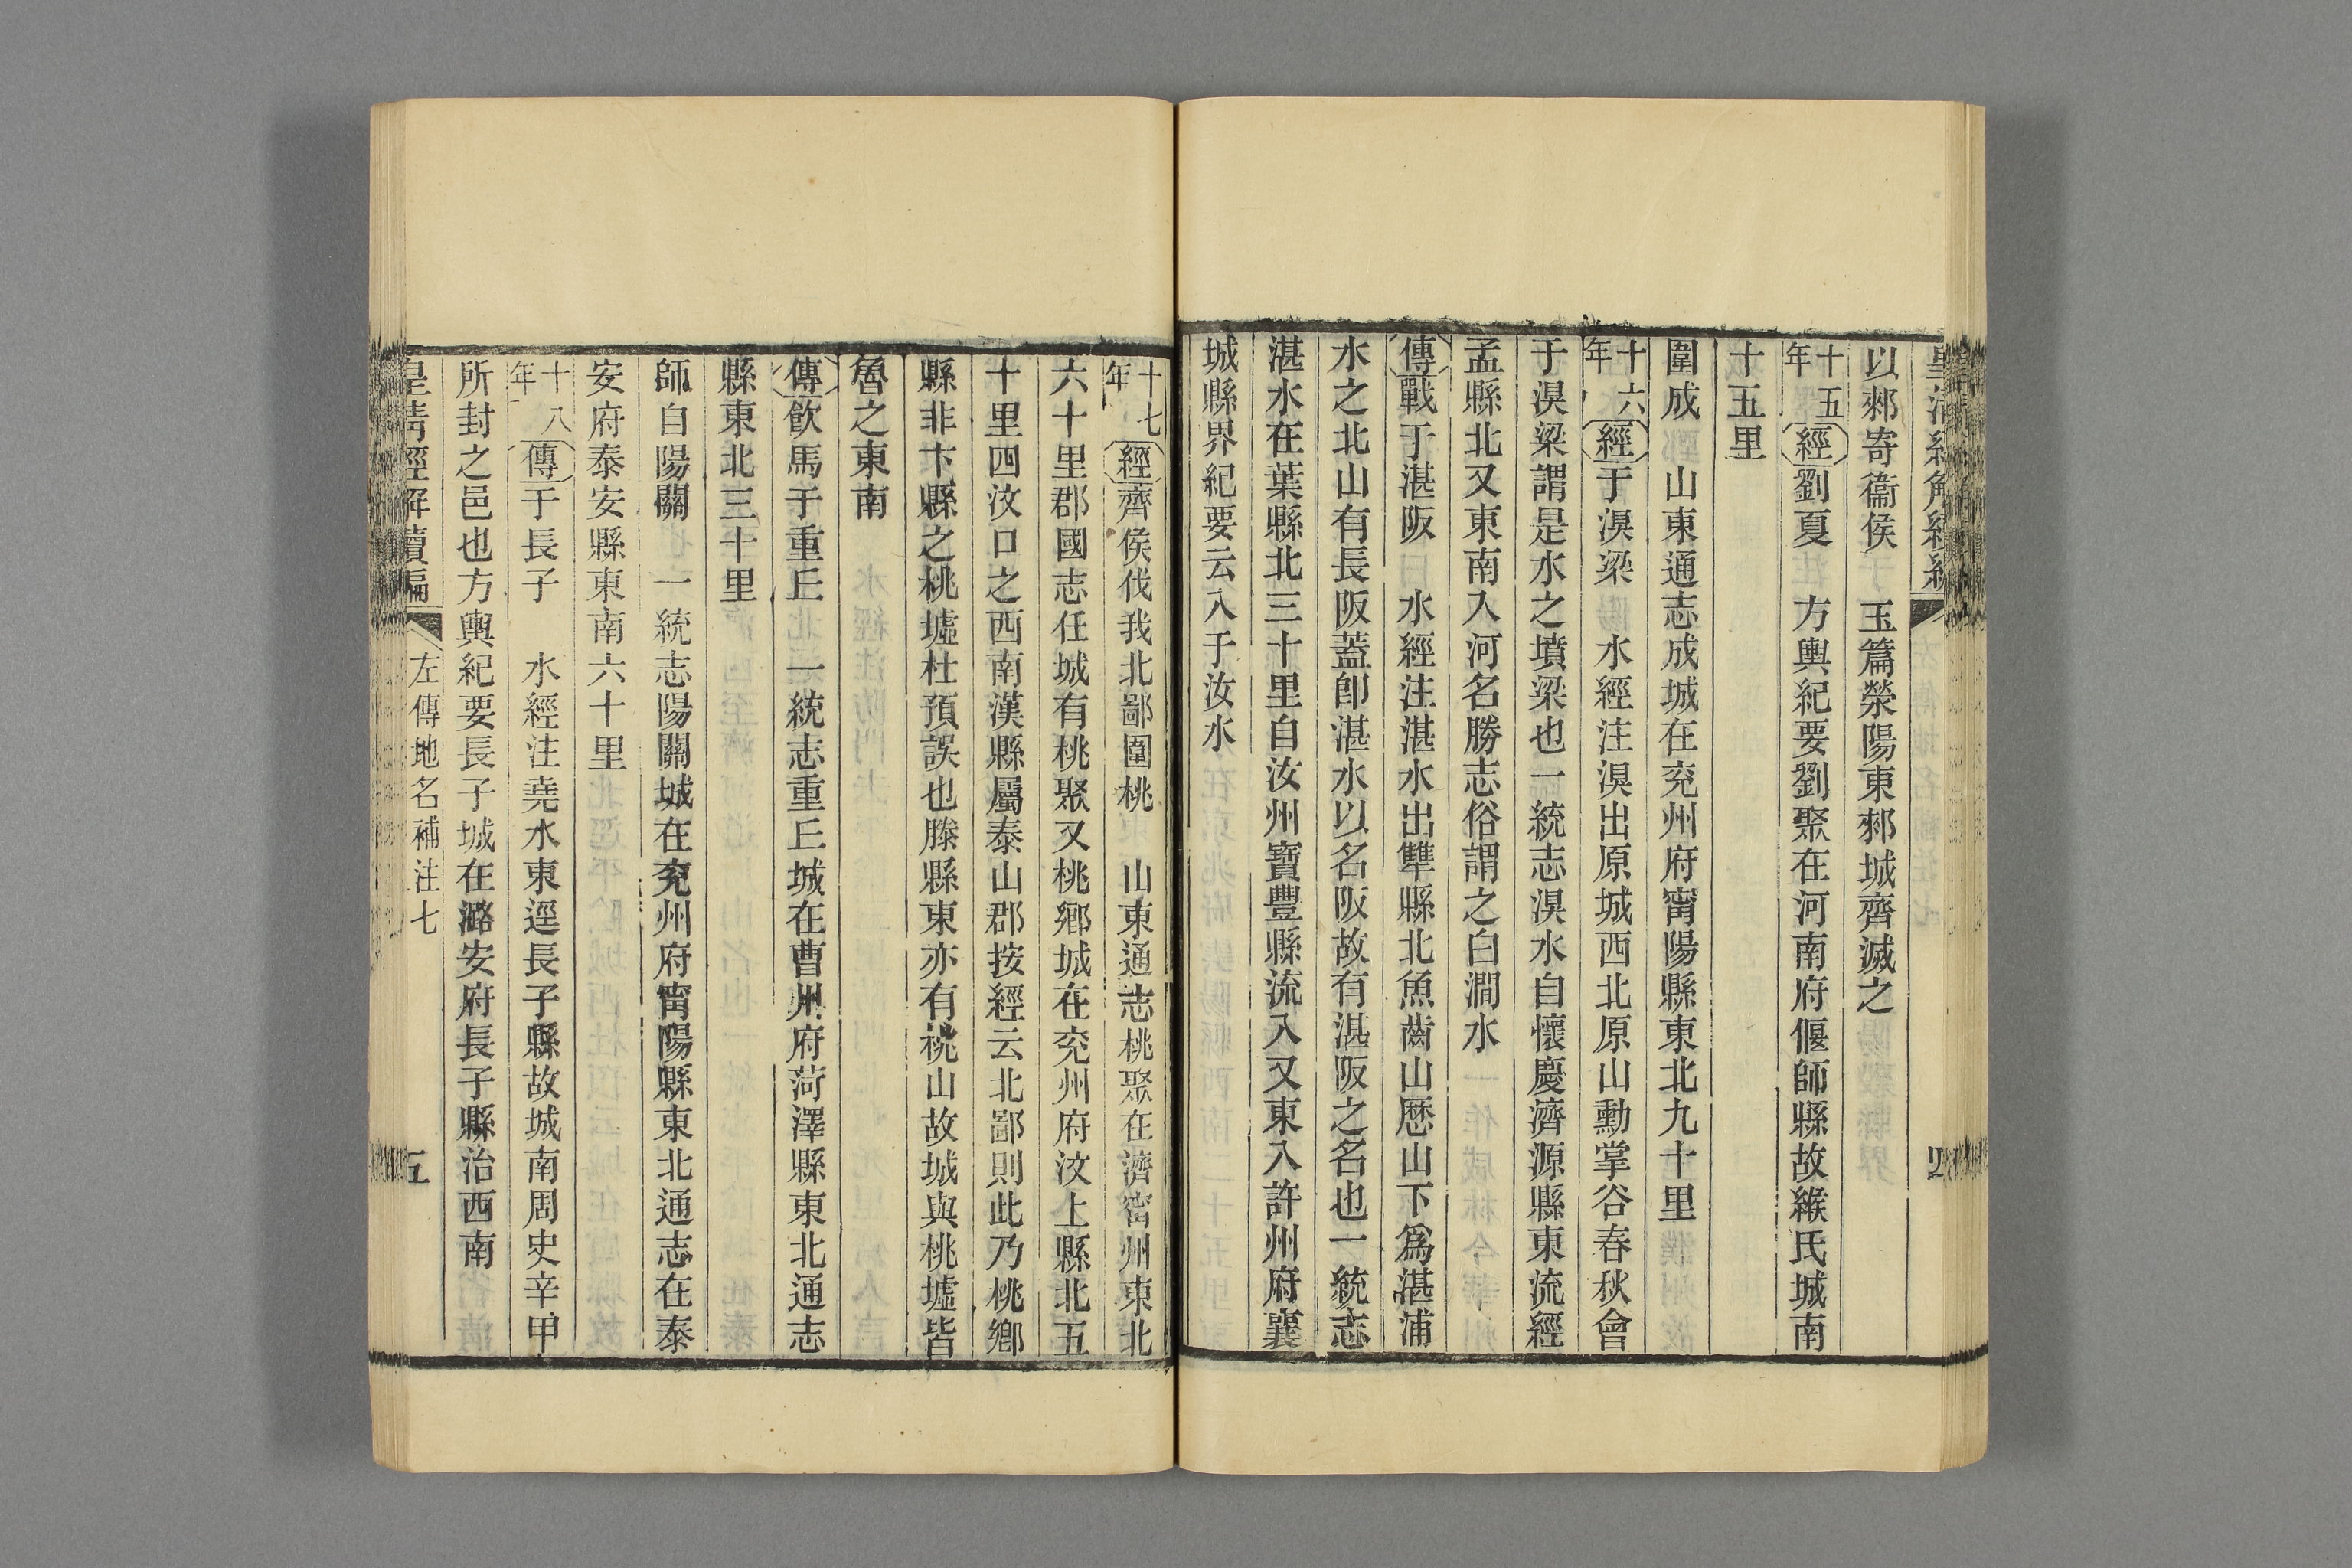 皇清經解續編
四
以郲寄衞侯　玉篇滎陽東郲城齊滅之
十五年經劉夏　方輿紀要劉聚在河南府偃師縣故緱氏城南
十五里
圍成　山東通志成城在兖州府甯陽縣東北九十里
十六年經于湨梁　水經注湨出原城西北原山勳掌谷春秋會
于湨梁謂是水之墳梁也一統志湨水自懷慶濟源縣東流經
孟縣北又東南入河名勝志俗謂之白澗水
傳戰于湛阪　水經注湛水出犨縣北魚齒山歷山下爲湛浦
水之北山有長阪蓋卽湛水以名阪故有湛阪之名也一統志
湛水在葉縣北三十里自汝州寶豐縣流入又東入許州府襄
城縣界紀要云入于汝水
十七年經齊侯伐我北鄙圍桃　山東通志桃聚在濟甯州東北
六十里郡國志任城有桃聚又桃鄉城在兖州府汶上縣北五
十里四汶口之西南漢縣屬泰山郡按經云北鄙則此乃桃鄉
縣非卞縣之桃墟杜預誤也滕縣東亦有桃山故城與桃墟皆
魯之東南
傳飲馬于重丘　一統志重丘城在曹州府菏澤縣東北通志
縣東北三十里
師自陽關　一統志陽關城在兖州府甯陽縣東北通志在泰
安府泰安縣東南六十里
十八年傳于長子　水經注堯水東逕長子縣故城南周史辛甲
所封之邑也方輿紀要長子城在潞安府長子縣治西南
皇淸經解續編
左傳地名補注七
五